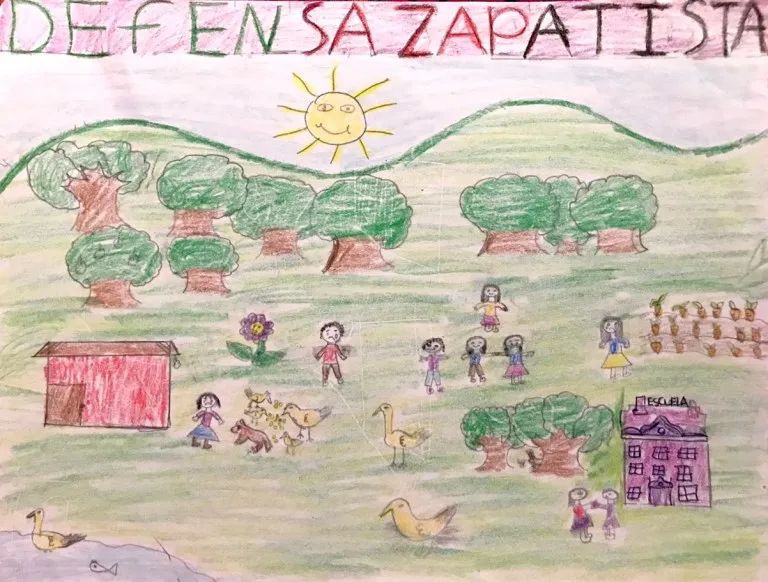 DEFENSA ZAPATISTA
ESCUELA